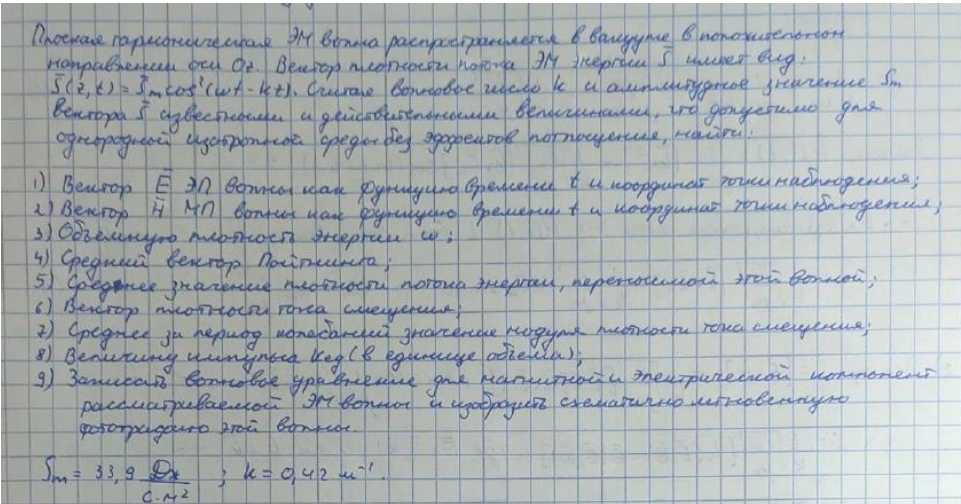 Плоская гармоническая ЭМ волна распространяется в вакууме в положительном
направлении оси Oz. Вектор плотности потока ЭМ энергии S̄ имеет вид:
S̄(z,t) = S̄m cos²(ωt - kt). Считая волновое число k и амплитудное значение Sm
вектора S̄ известными и действительными величинами, что допустимо для
однородной изотропной среды без эффектов поглощения, найти:
1) Вектор E̅ ЭП волны как функцию времени t и координат точки наблюдения;
2) Вектор H̅ МП волны как функцию времени t и координат точки наблюдения;
3) Объемную плотность энергии w;
4) Средний вектор Пойтнинга;
5) Среднее значение плотности потока энергии, переносимой этой волной;
6) Вектор плотности тока смещения;
7) Среднее за период колебаний значение модуля плотности тока смещения;
8) Величину импульса Kед (в единице объема);
9) Записать волновое уравнение для магнитной и электрической компонент
рассматриваемой ЭМ волны и изобразить схематично мгновенную
фотографию этой волны.
Sm = 33,9 Дж/с·м² ; k = 0,42 м⁻¹.